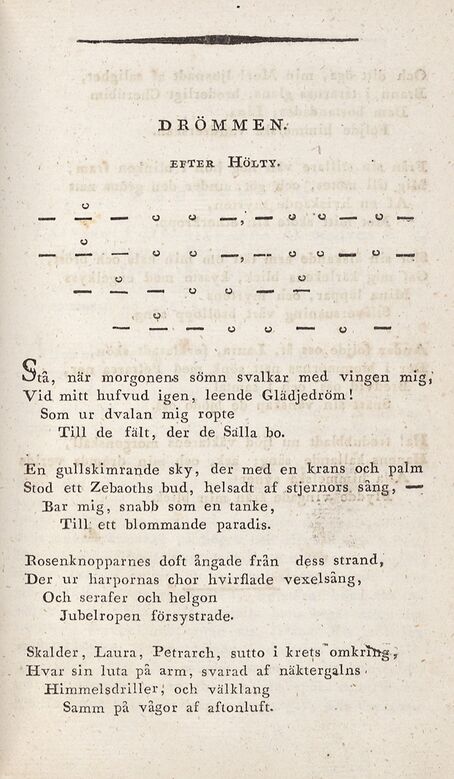 DRÖMMEN.
EFTER HÖLTY.
Stå, när morgonens sömn svalkar med vingen mig,
Vid mitt hufvud igen, leende Glädjedröm!
Som ur dvalan mig ropte
Till de fält, der de Sälla bo.
En gullskimrande sky, der med en krans och palm
Stod ett Zebaoths bud, helsadt af stjernors sång, —
Bar mig, snabb som en tanke,
Till ett blommande paradis.
Rosenknopparnes doft ångade från dess strand,
Der ur harpornas chor hvirflade vexelsång,
Och serafer och helgon
Jubelropen försystrade.
Skalder, Laura, Petrarch, sutto i krets omkring,
Hvar sin luta på arm, svarad af näktergalns
Himmelsdriller, och välklang
Samm på vågor af aftonluft.